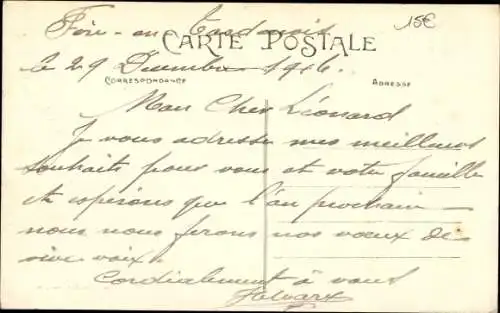 Fère-en Tardenois
15€
CARTE POSTALE
le 29 Décembre 1916.
CORRESPONDANCE
ADRESSE
Mon Cher Léonard
Je vous adresse mes meilleurs
souhaits pour vous et votre famille
et espérons que l'an prochain
nous nous ferons nos vœux de
vive voix.
Cordialement à vous